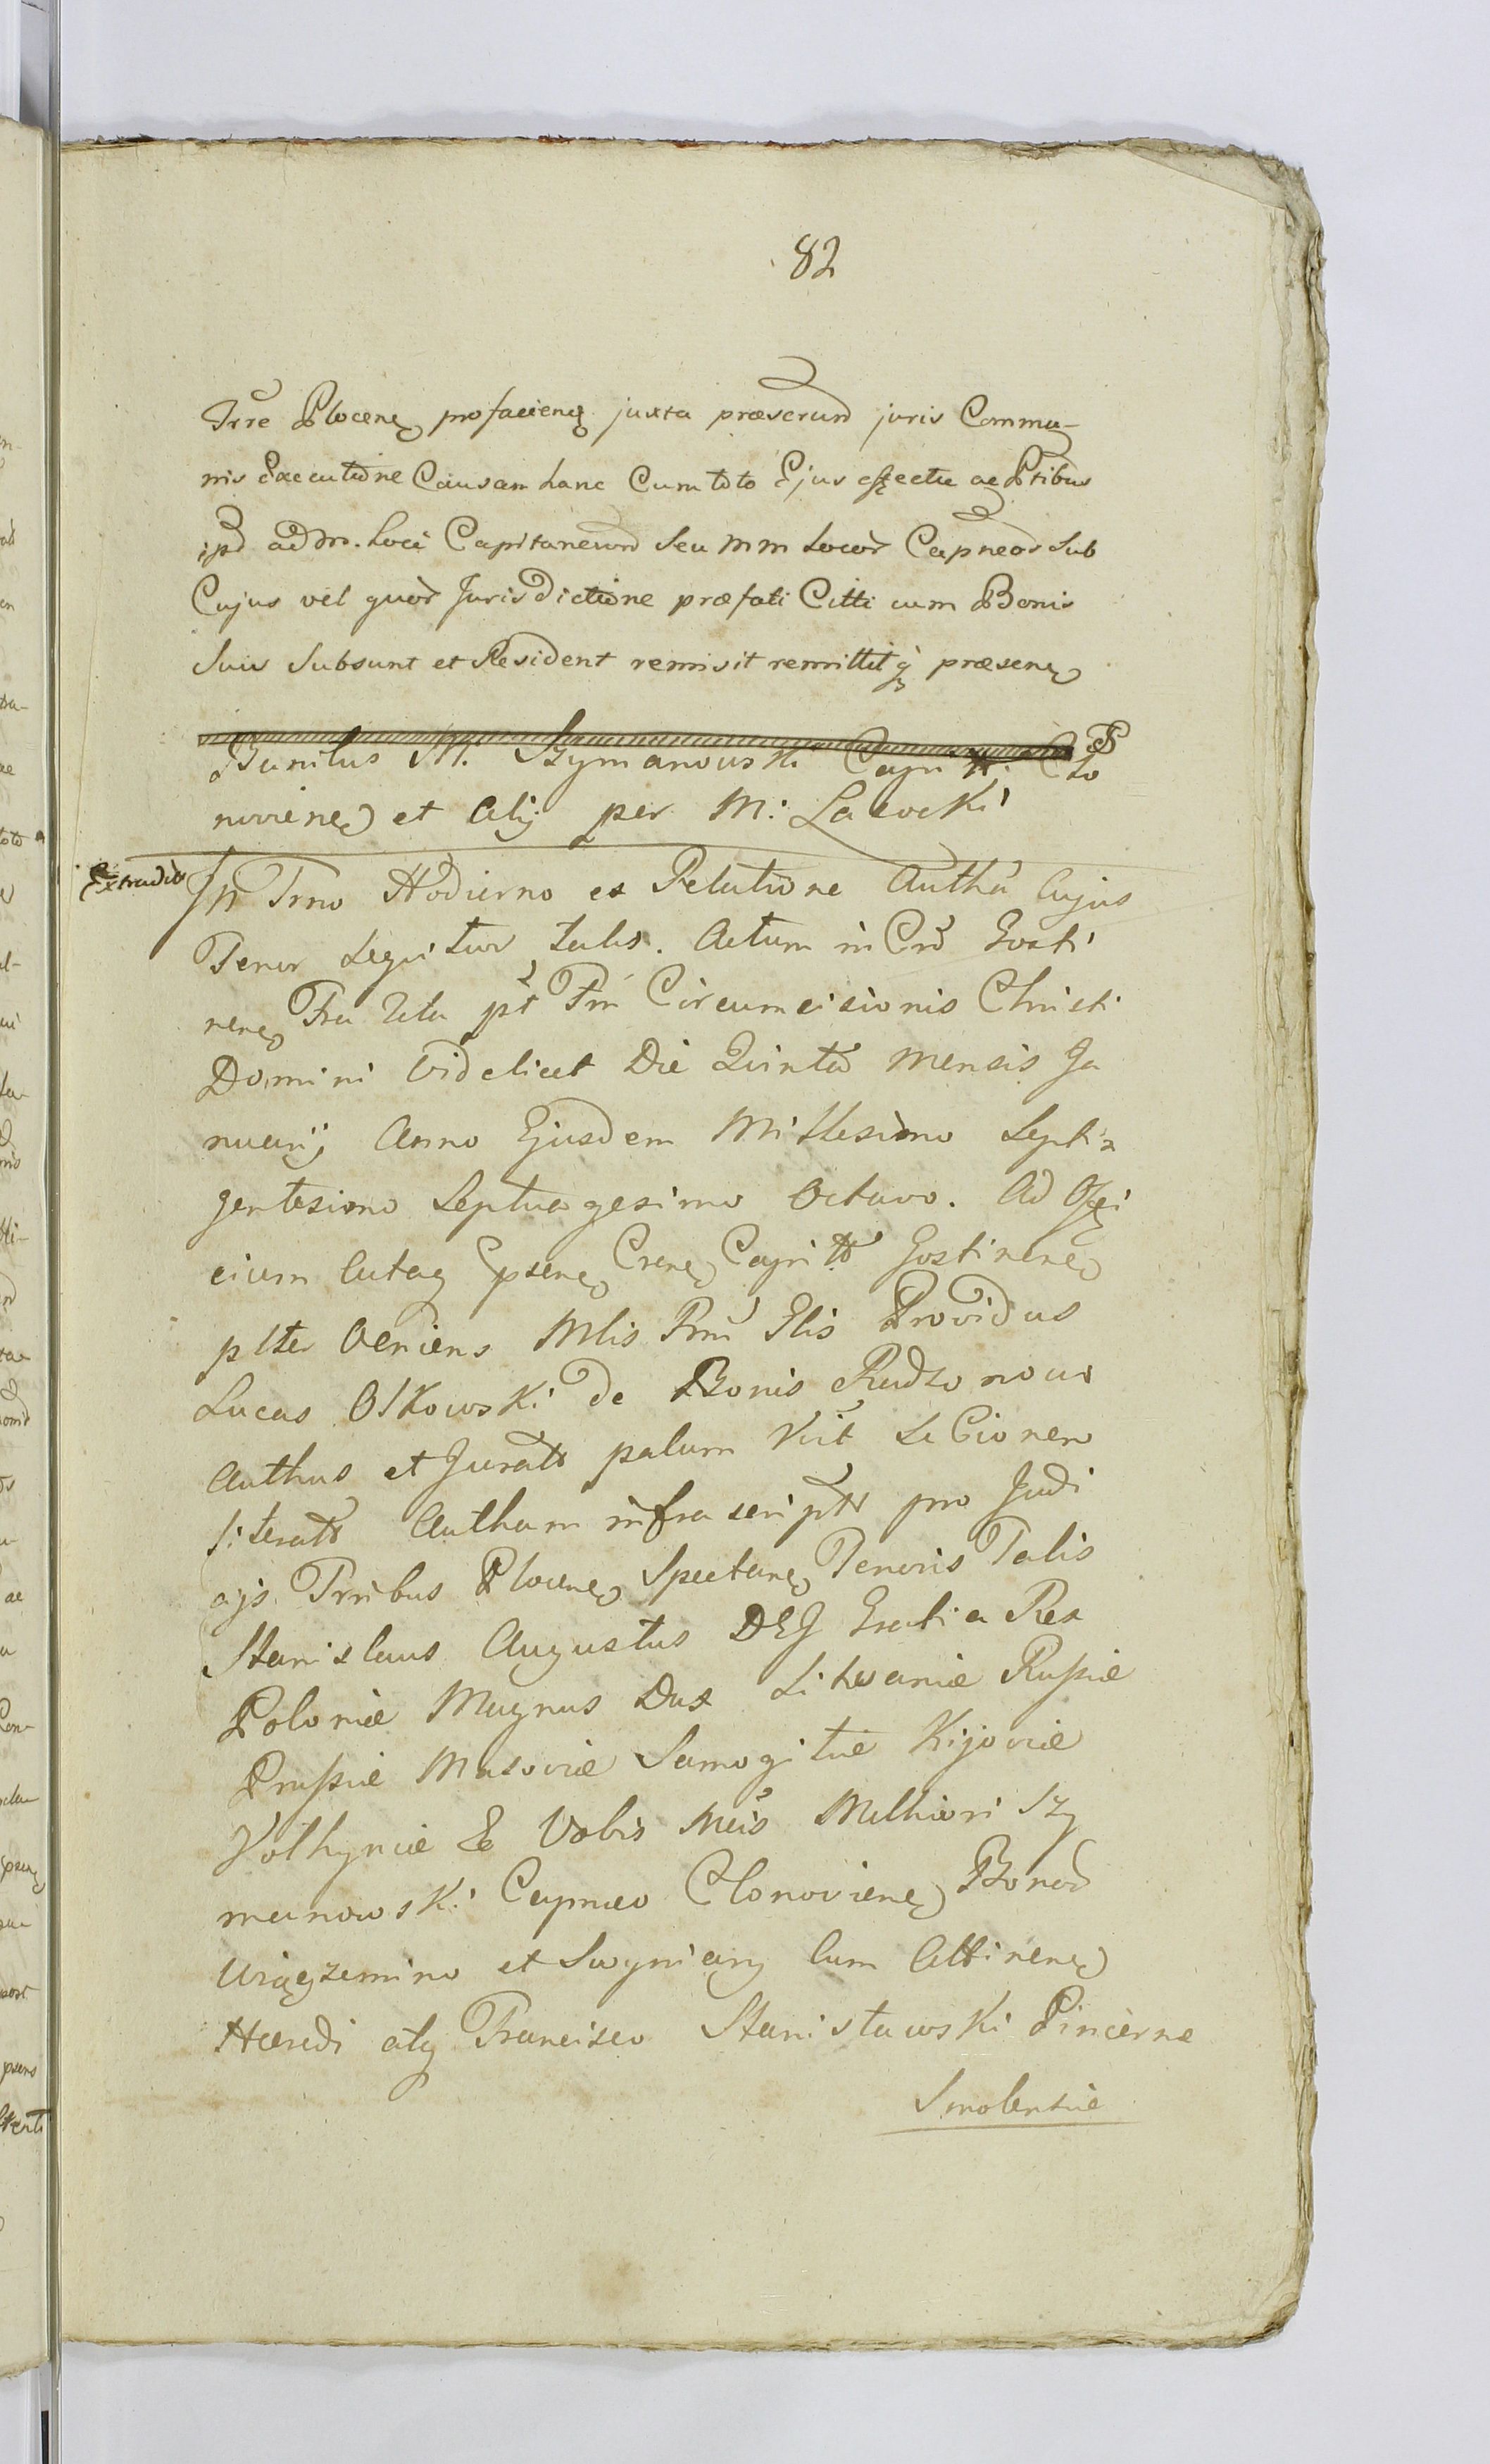 82
Trre Plocen profacien juxta præscrum juris Commu-
nis Executione Causam hanc Cum toto Ejus effectu ac Ptibus
ipd ad m. Loci Capitaneum Seu mm Locor Capneor Sub
Cujus vel quor Jurisdictione præfati Citti cum Bonis
Suis Subsunt et Resident remisit remittitq præsen
Banitus M. Szymanowski Capn Clo
novien et Alij per M: Laiocki
Extradit In Trno Hodierno ex Relatione Autha Cujus
Tenor Legitur talis. Actum in Cro Gosti
nen Fra 2da pt Fm Circumcisionis Christi
Domini Videlicet Die Quinta Mensis Ja
nuarij Anno Ejusdem Millesimo Septi-
gentesimo Septuagesimo Octavo. Ad Offi
cium Actaq psen Cren Capn Gostinen
plter Veniens Mlis Rm Glis Providus
Lucas Olkowski de Bonis Radzonow
Authus et Jurat palam Rcit Le Cionem
Literat Autham infra script pro Judi
cijs Trribus Plocen Spectan Tenoris Talis
Stanislaus Augustus DEJ Gratia Rex
Poloniæ Magnus Dux Litwaniæ Rußiæ
Prußiæ Masoviæ Samogitiæ Kijoviæ
Volhyniæ & Vobis Mcis Melhiori Szy
manowski Capneo Clonovien Bonor
Wiączemino et Swyniary Cum Attinen
Hæredi atq Francisco Stanisławski Pincernæ
Smolensiæ